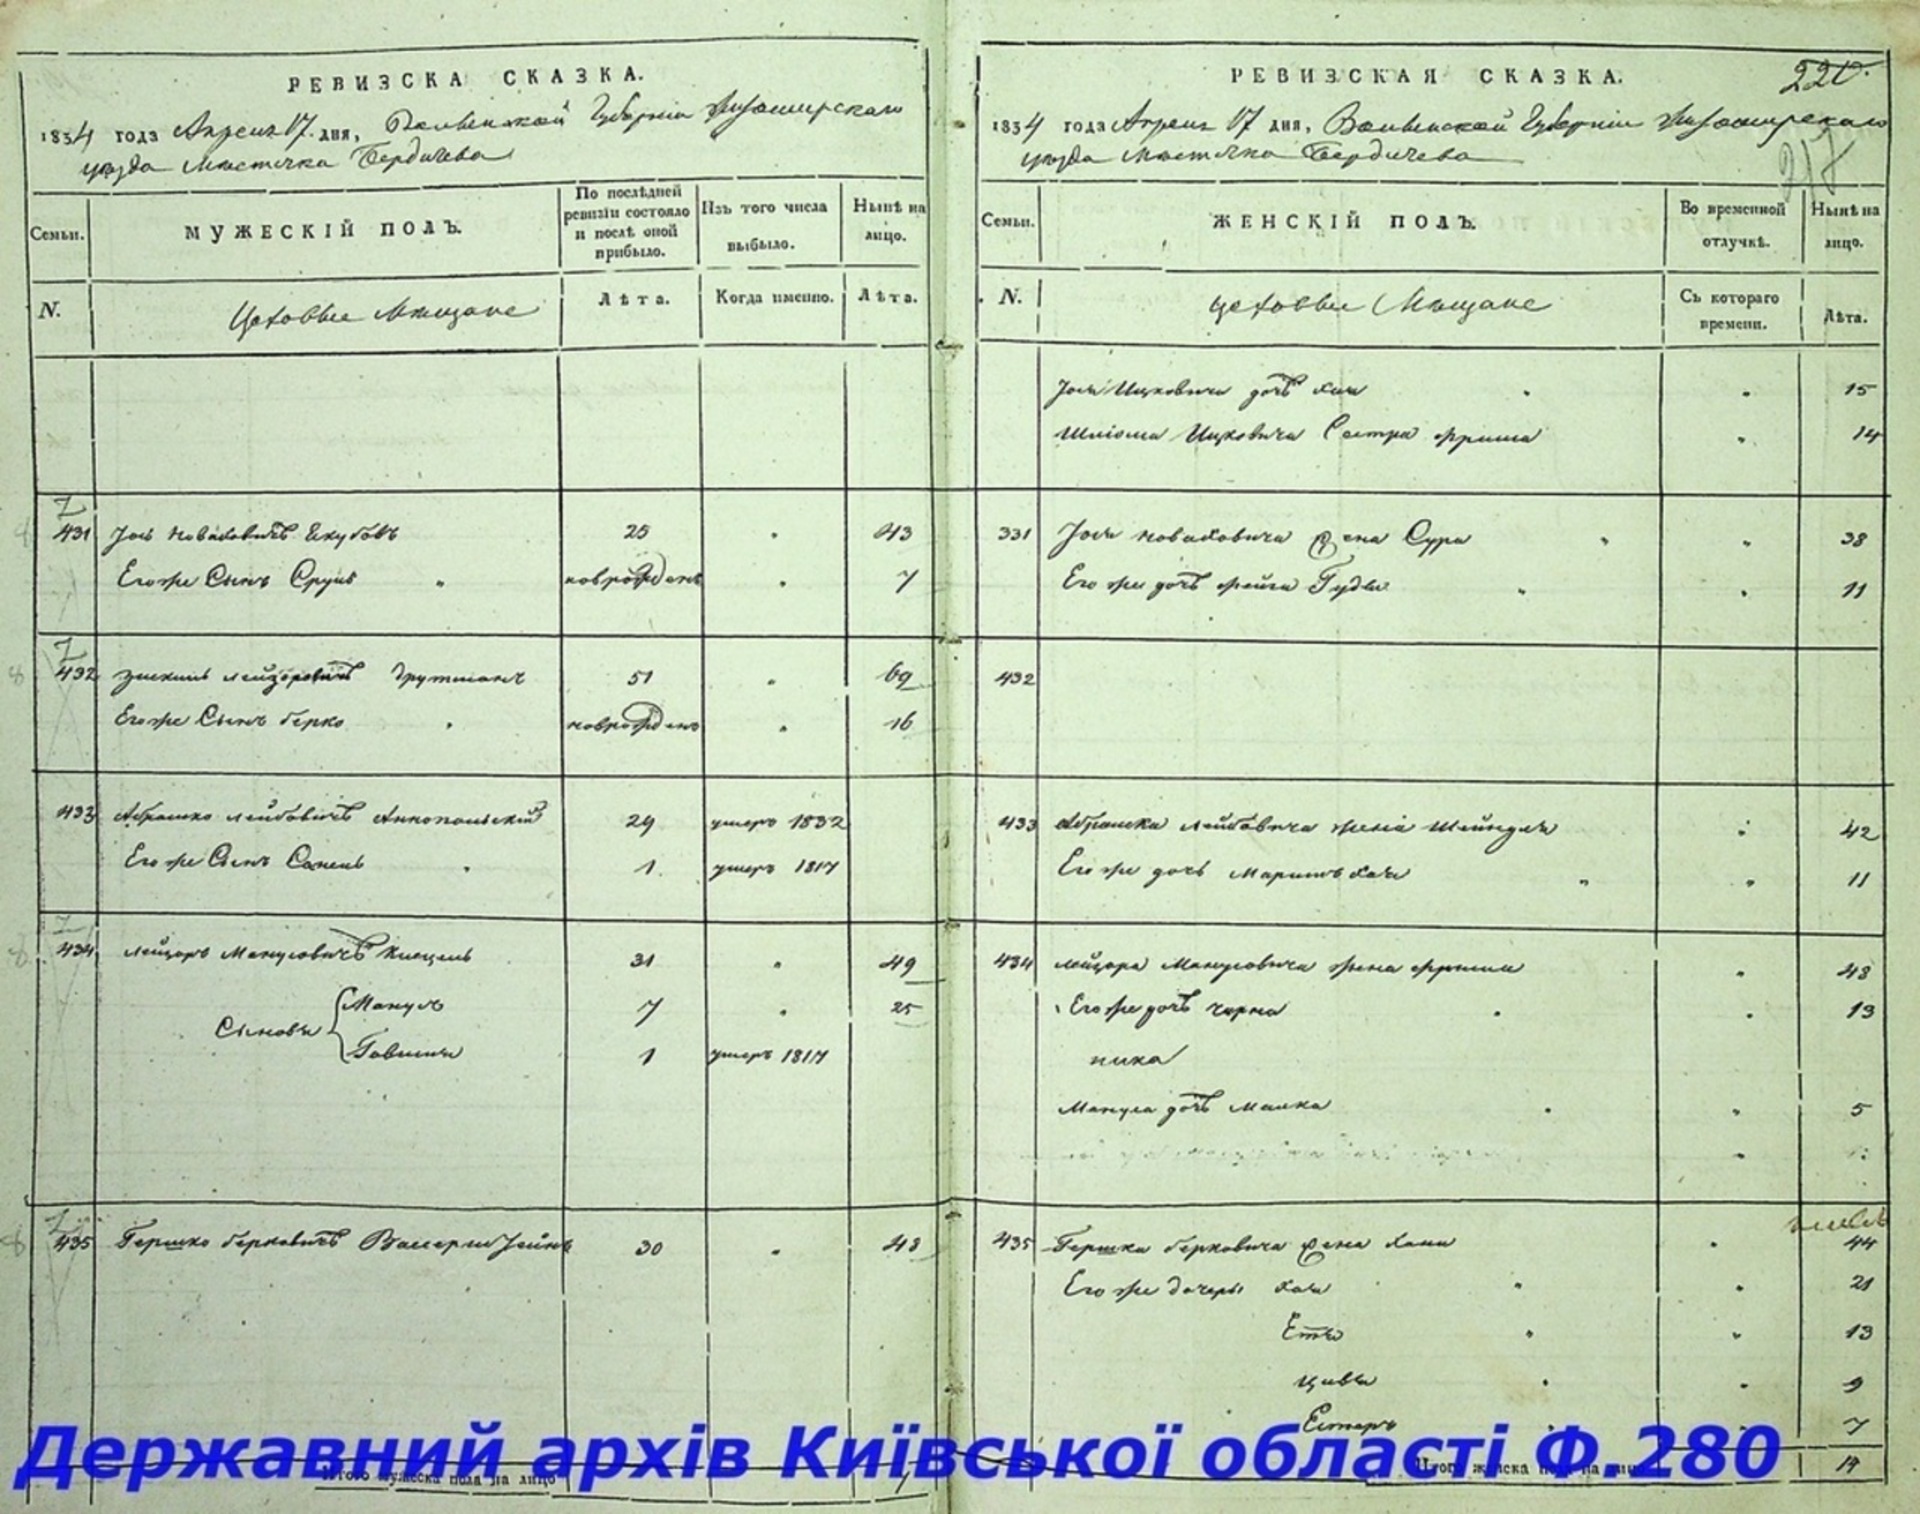 РЕВИЗСКА СКАЗКА.
1834 года Апреля 17. дня, Волынской Губерніи Житомирскаго
уезда Местечка Бердичева
Семьи.
МУЖЕСКІЙ ПОЛЪ.
По послѣдней ревизіи состояло и послѣ оной прибыло.
Изъ того числа выбыло.
Нынѣ на лицо.
N.
Цеховые Мещане
Лѣта.
Когда именно.
Лѣта.
431 Іось Новахович 25 43
Его же Сынъ Сруль новрожден 7
432 Лейзорович 51 69
Его же Сынъ Берко новрожденъ 16
433 Абрашко Лейбовичъ Аннопольскій 29 умеръ 1832
Его же Сынъ 1 умеръ 1817
434 Лейзоръ Мануловичъ 31 49
Сыновья Манулъ 7 25
1 умеръ 1817
435 Гершко Берковичъ 30 48
Итого мужеска пола на лицо 7
РЕВИЗСКАЯ СКАЗКА.
220.
217
1834 года Апреля 17 дня, Волынской Губерніи Житомирскаго
уезда Местечка Бердичева
Семьи.
ЖЕНСКІЙ ПОЛЪ.
Во временной отлучкѣ.
Нынѣ на лицо.
N.
Цеховые Мещане
Съ котораго времени.
Лѣта.
Іося Ицковича дочь Хая 15
Шліома Ицковича Сестра Фрима 14
331 Іося Новаховича жена Сура 38
Его же дочь Фейга Гудля 11
432
433 Абрашка Лейбовича жена Шейндля 42
Его же дочь Маримъ Хая 11
434 Лейзора Мануловича жена 48
Его же дочь Черна 13
Манула дочь Малка 5
435 Гершка Берковича жена Хана 44
Его же дочери Хая 21
Етя 13
Цивья 9
Естеръ 7
Итого женска пола на лицо 14
Державний архів Київської області Ф. 280